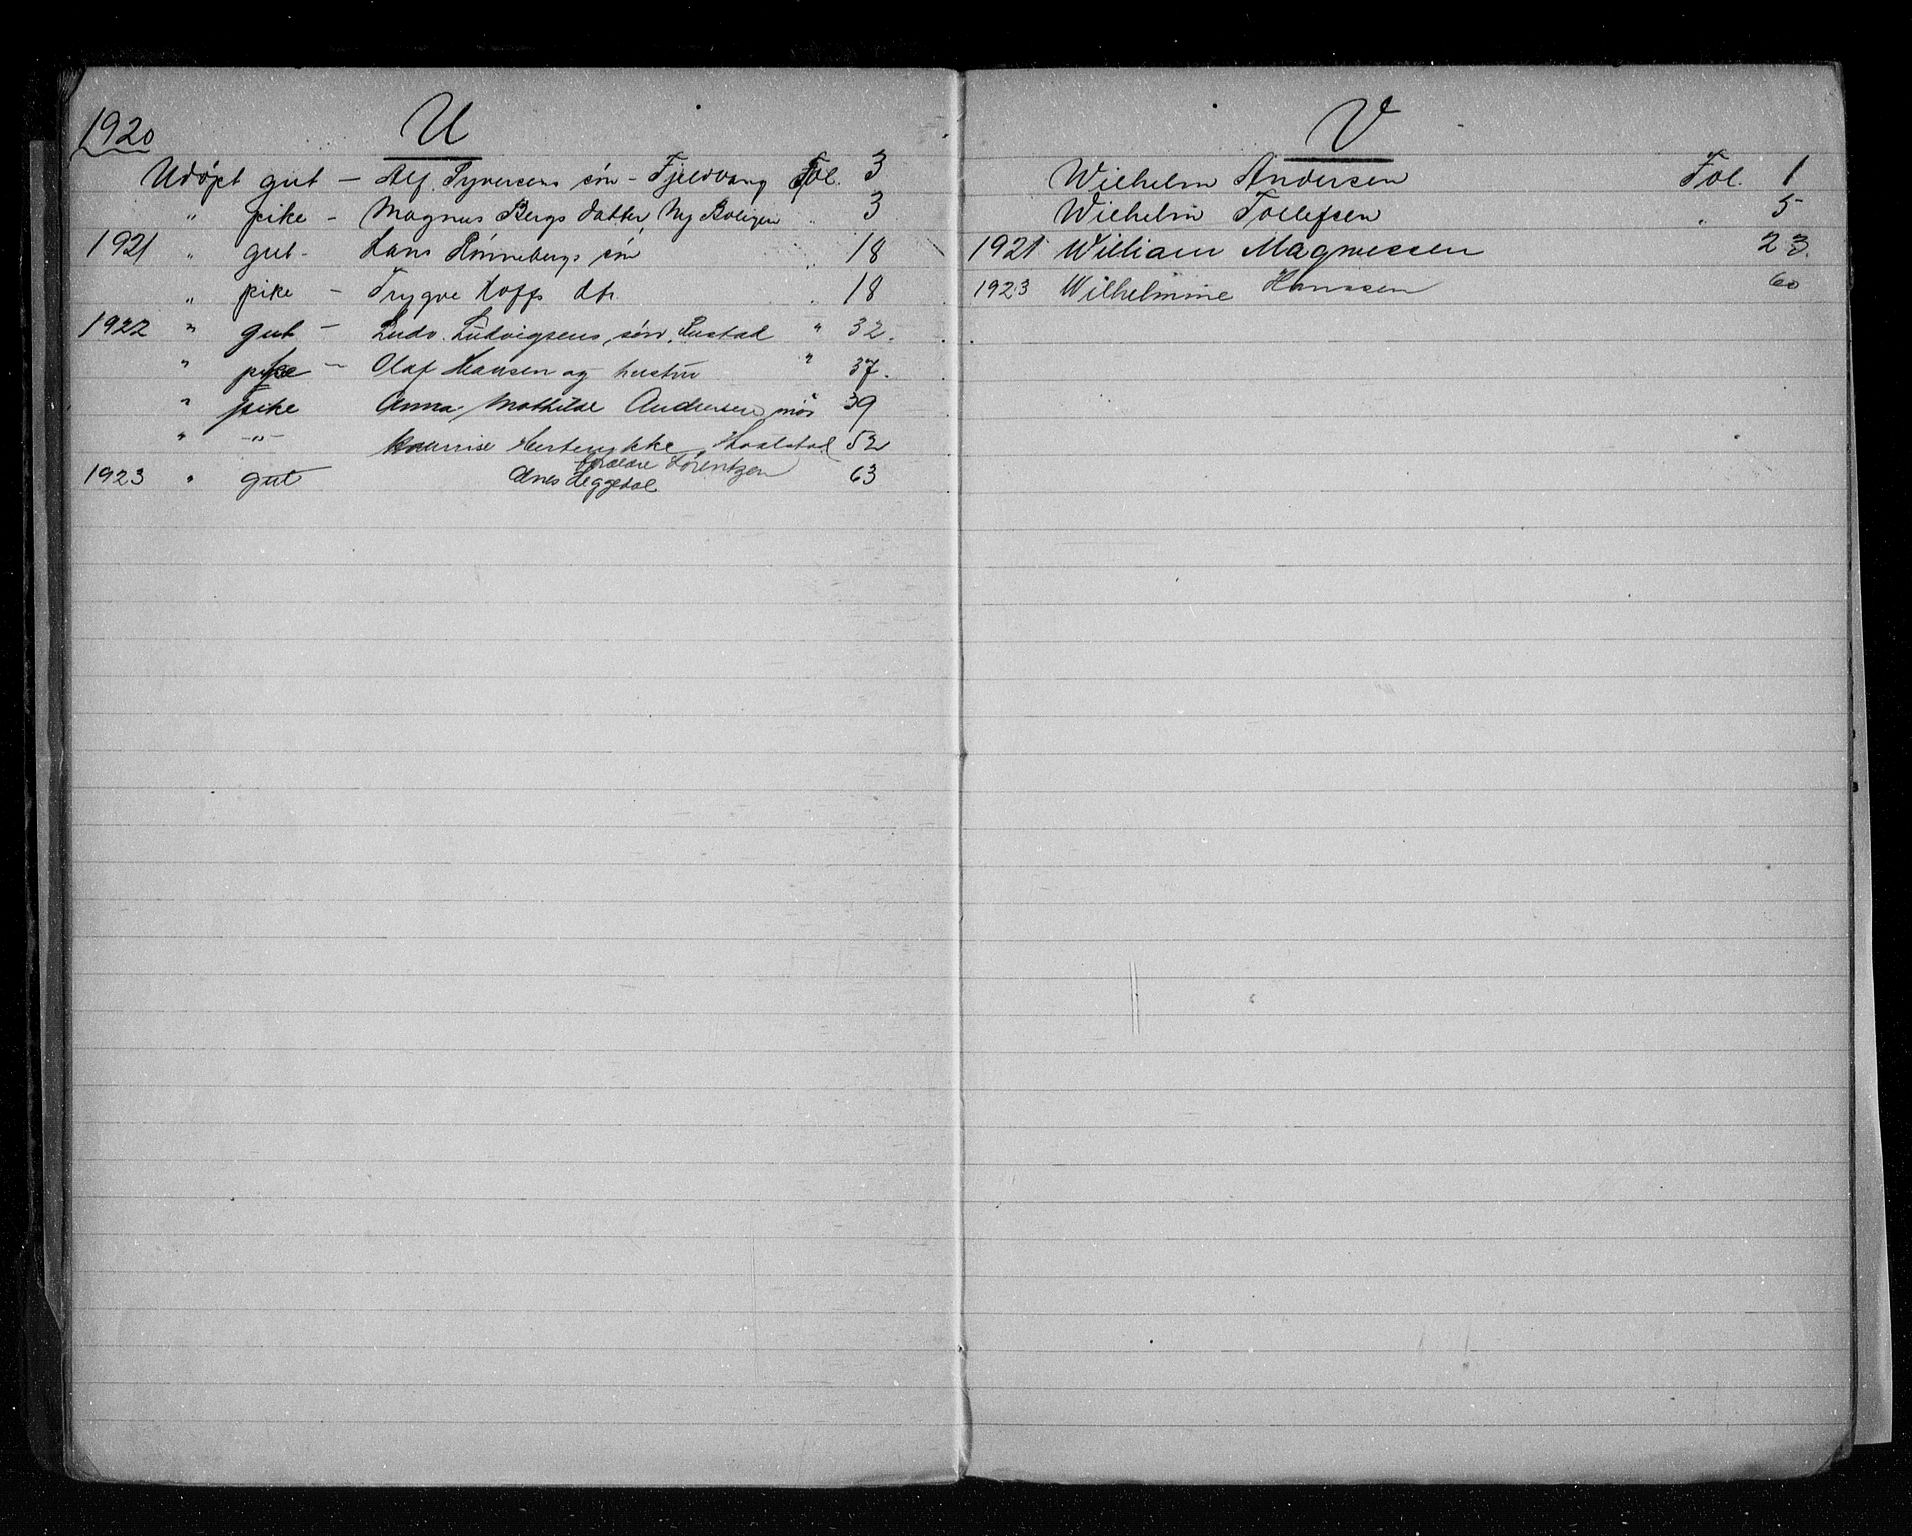 1920 U
Udøpt gut – Alf Syversens søn – Fjeldvang Fol. 3
" pike – Magnus Bergs datter, Ny Boligen " 3
1921 " gut – Hans Rønnebergs søn " 18
" pike – Trygve Hoffs dtr. " 18
1922 " gut – Ludv. Ludvigsens søn, Rustad " 32.
" pike – Olaf Hansen og hustru " 37.
" pike Anna Mathilde Andersen mor 39
" –"– 52
1923 " gut forældre Lorentzen 63
Heggedal
V
Wilhelm Andersen Fol. 1
Wilhelm Tollefsen " 5
1921 William Magnussen 23.
1923 Wilhelmine Hanssen 60